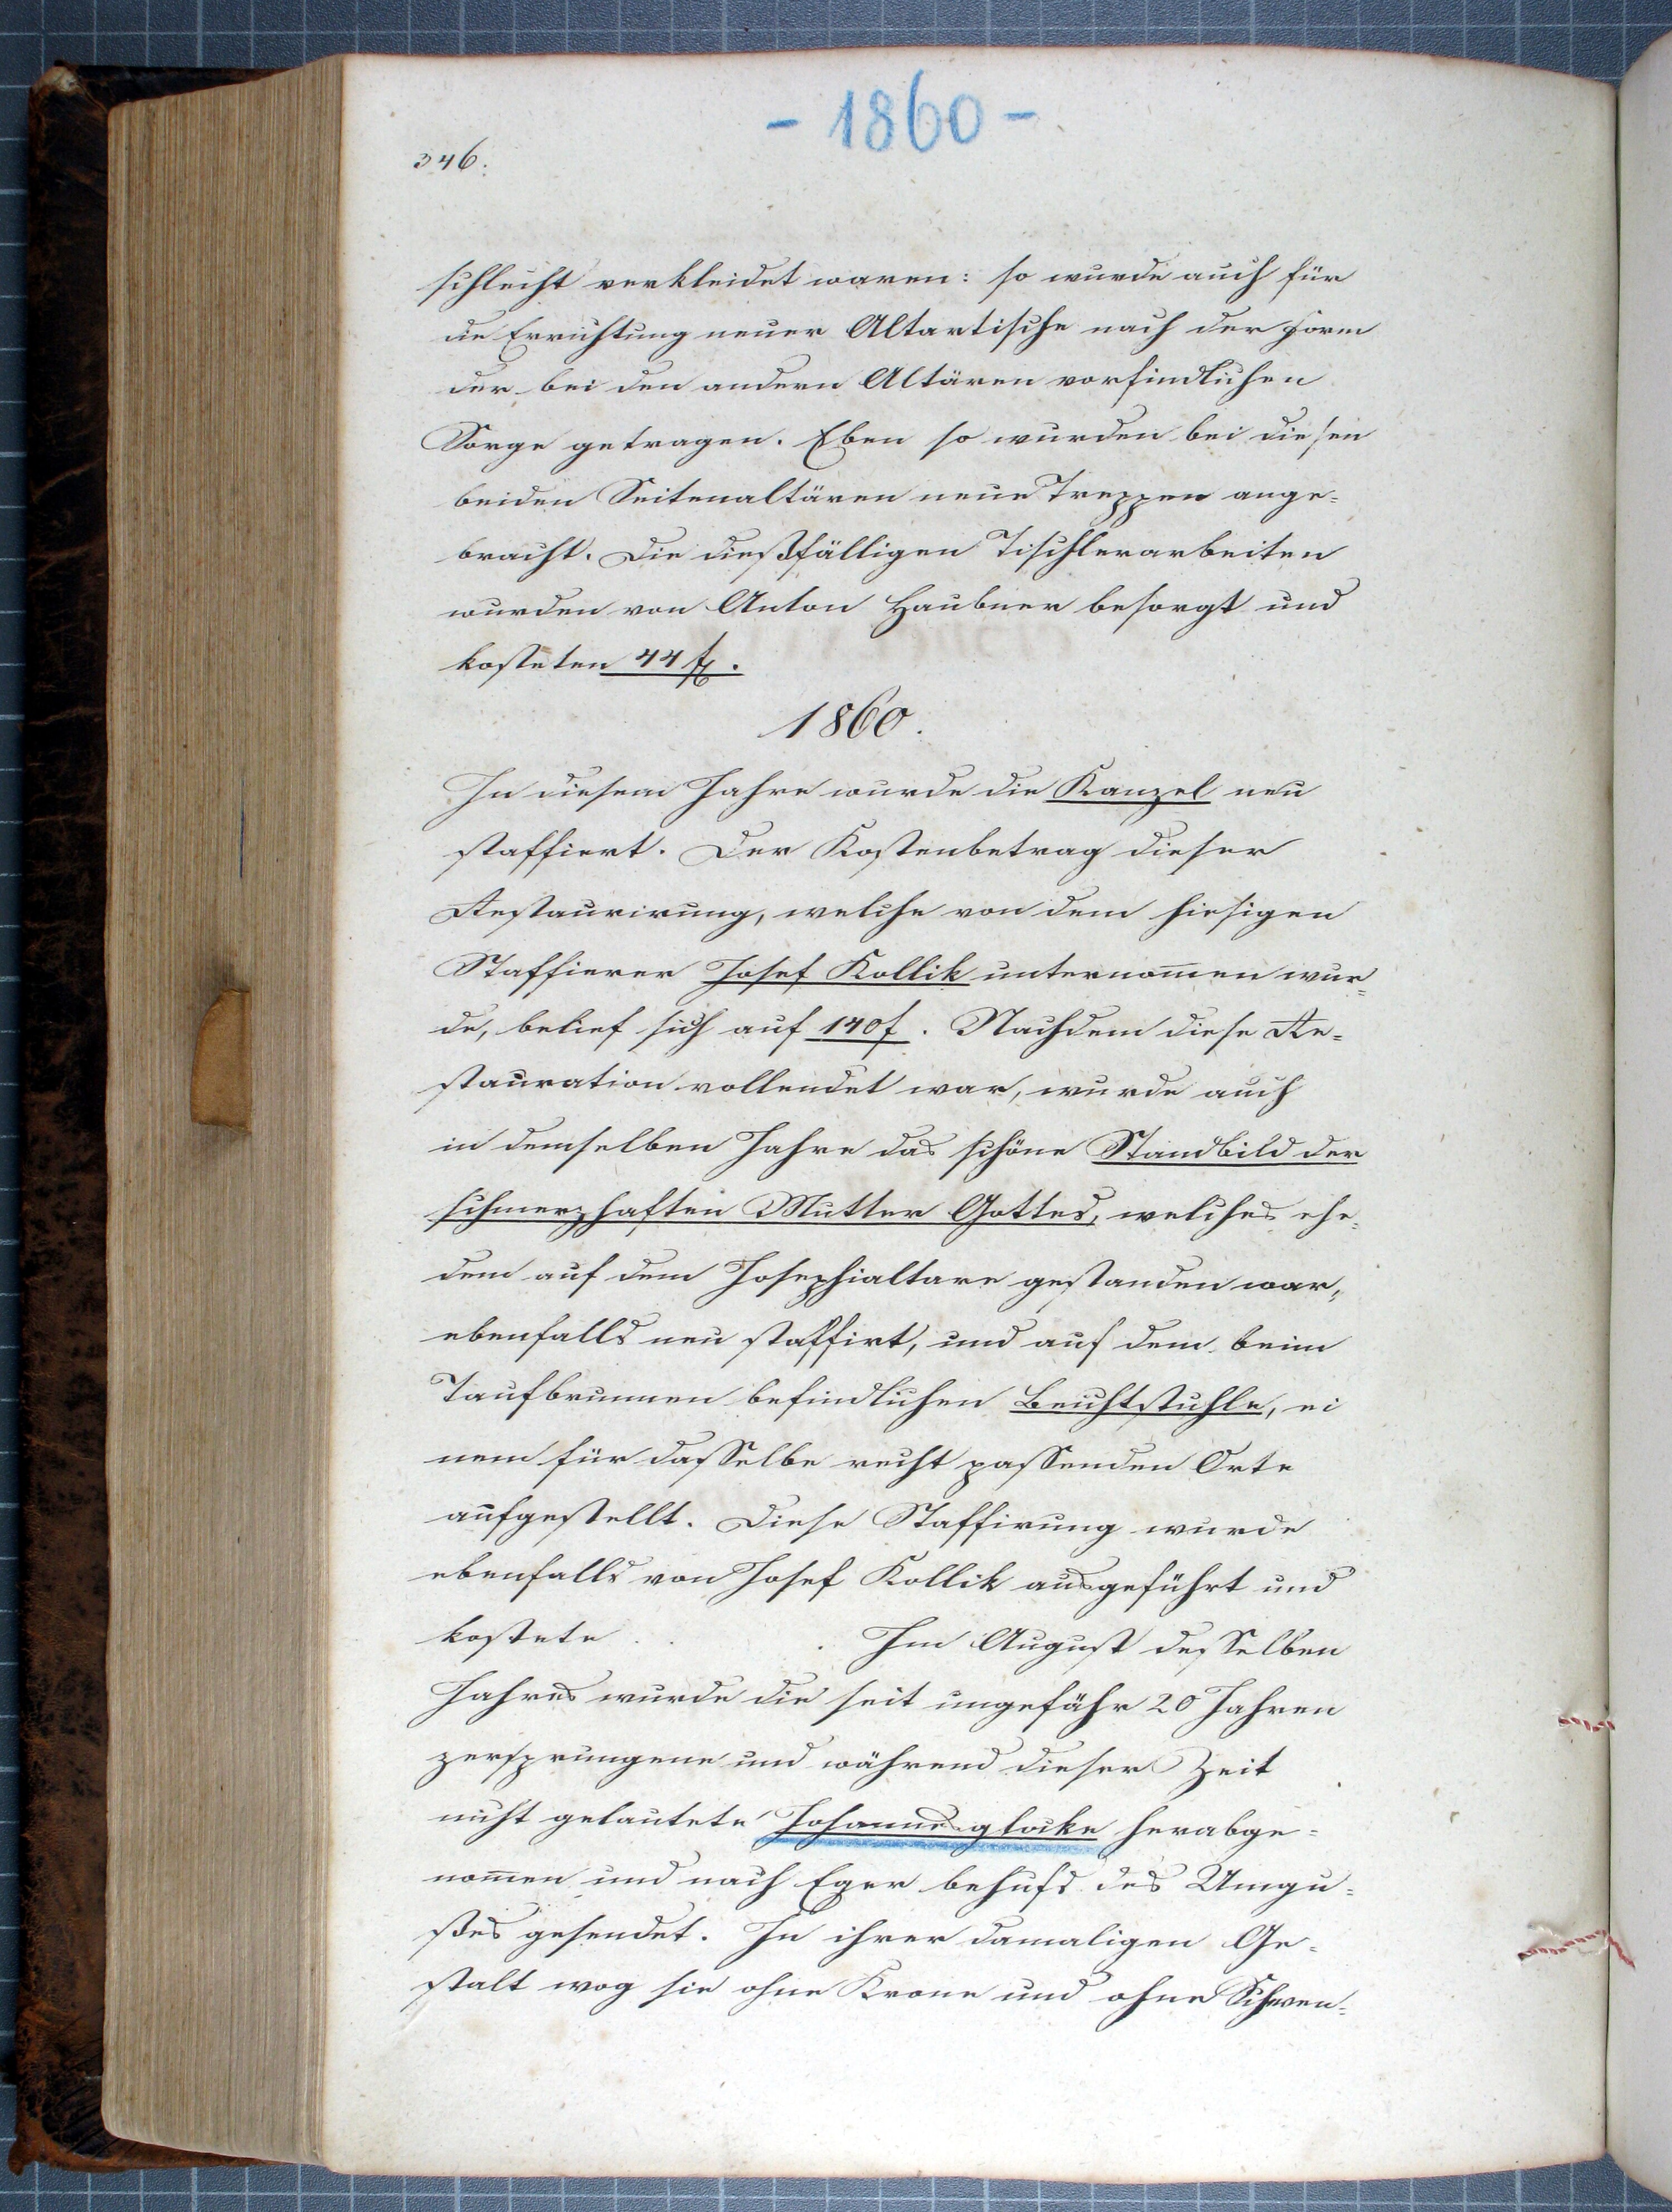 - 1860 -
346.
schlecht verkleidet waren: so wurde auch für
die Errichtung neuer Altartische nach der Form
der bei den andern Altären vorfindlichen
Sorge getragen. Eben so wurden bei diesen
beiden Seitenaltären neue Treppen ange=
bracht. Die dießfälligen Tischlerarbeiten
wurden von Anton Haubner besorgt und
kosteten 44 f.
1860.
In diesem Jahre wurde die Kanzel neu
staffiert. Der Kostenbetrag dieser
Restaurirung, welche von dem hiesigen
Staffierer Josef Kollik unternom̄en wur=
de, belief sich auf 140 f. Nachdem diese Re=
stauration vollendet war, wurde auch
in demselben Jahre das schöne Standbild der
schmerzhaften Mutter Gottes, welches ehe=
dem auf dem Josephialtare gestanden war,
ebenfalls neu staffirt, und auf dem beim
Taufbrunnen befindlichen Beichtstuhle, ei
nem für dasselbe recht passenden Orte
aufgestellt. Diese Staffirung wurde
ebenfalls von Josef Kollik ausgeführt und
kostete . . . Im August desselben
Jahres wurde die seit ungefähr 20 Jahren
zersprungene und während dieser Zeit
nicht gelautete Johannesglocke herabge=
nom̄en und nach Eger behufs des Umgu=
ßes gesendet. In ihrer damaligen Ge=
stalt wog sie ohne Krone und ohne Schwen=